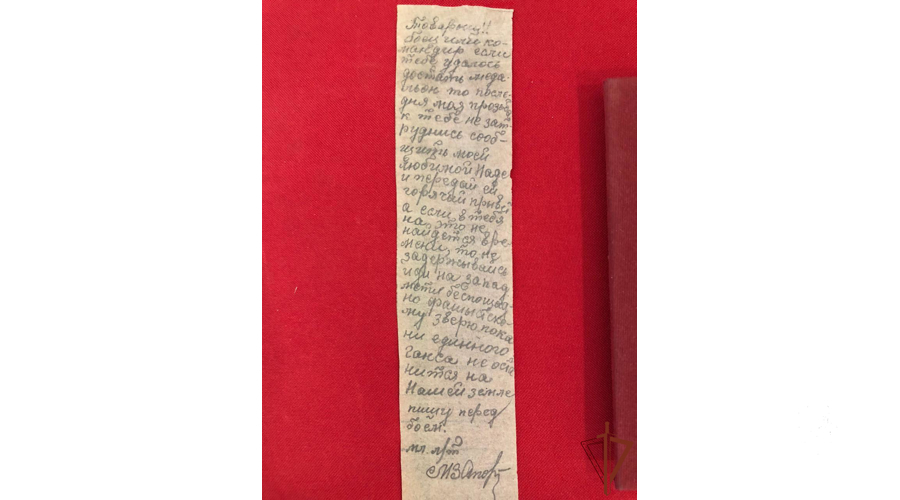 Товарищ!!
боец или ко-
мандир если
тебе удалось
достать меда-
льон то после-
дняя моя прозьба
к тебе не зат-
руднись сооб-
щить моей
любимой Наде
и передай ей
горячай привет
а если в тебя
на это не
найдется вре-
мени, то не
задержывайсь
иди на запад
мсти беспощад-
но фашыйско-
му зверю пока
ни единного
Ганса не оста
нится на
Нашей земле
пишу перед
боем.
мл. л/т